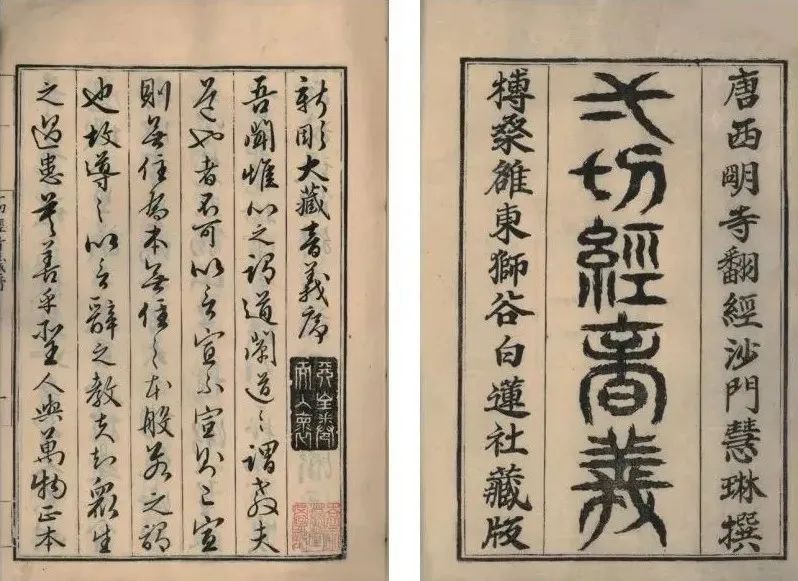 唐西明寺翻經沙門慧琳撰
一切經音義
榑桑雒東獅谷白蓮社藏版
新彫大藏音義序
吾聞惟心之謂道闡道之謂教夫
也者不可以言宣不宣
則無住為本無住之本般若之謂
也故導之以言辭之教夫知眾生
之過患莫善乎聖人與萬物正本